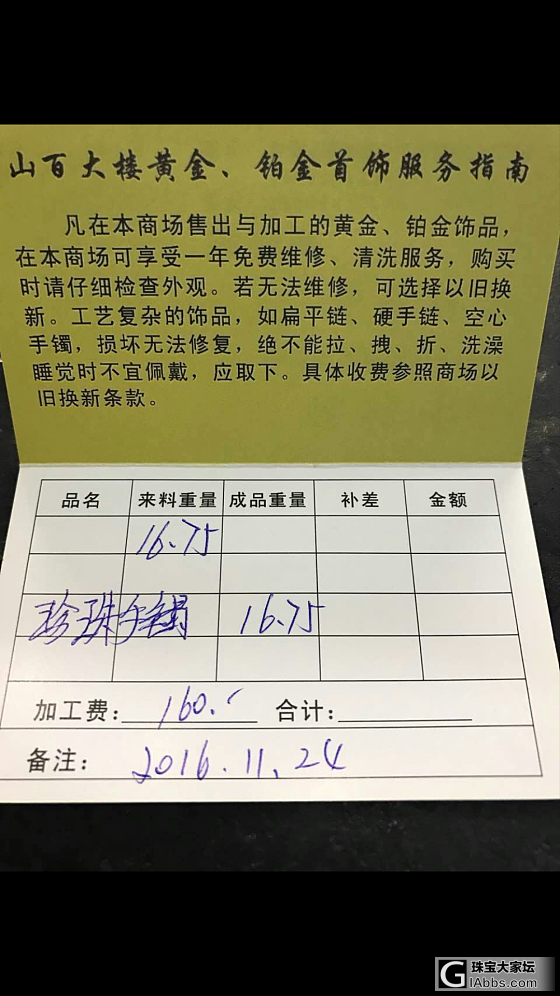 山百大楼黄金、铂金首饰服务指南
凡在本商场售出与加工的黄金、铂金饰品，
在本商场可享受一年免费维修、清洗服务，购买
时请仔细检查外观。若无法维修，可选择以旧换
新。工艺复杂的饰品，如扁平链、硬手链、空心
手镯，损坏无法修复，绝不能拉、拽、折、洗澡
睡觉时不宜佩戴，应取下。具体收费参照商场以
旧换新条款。
品名 来料重量 成品重量 补差 金额
16.75
珍珠手镯 16.75
加工费：160. 合计：
备注：2016.11.24
G 珠宝大家坛
GIAbbs.com